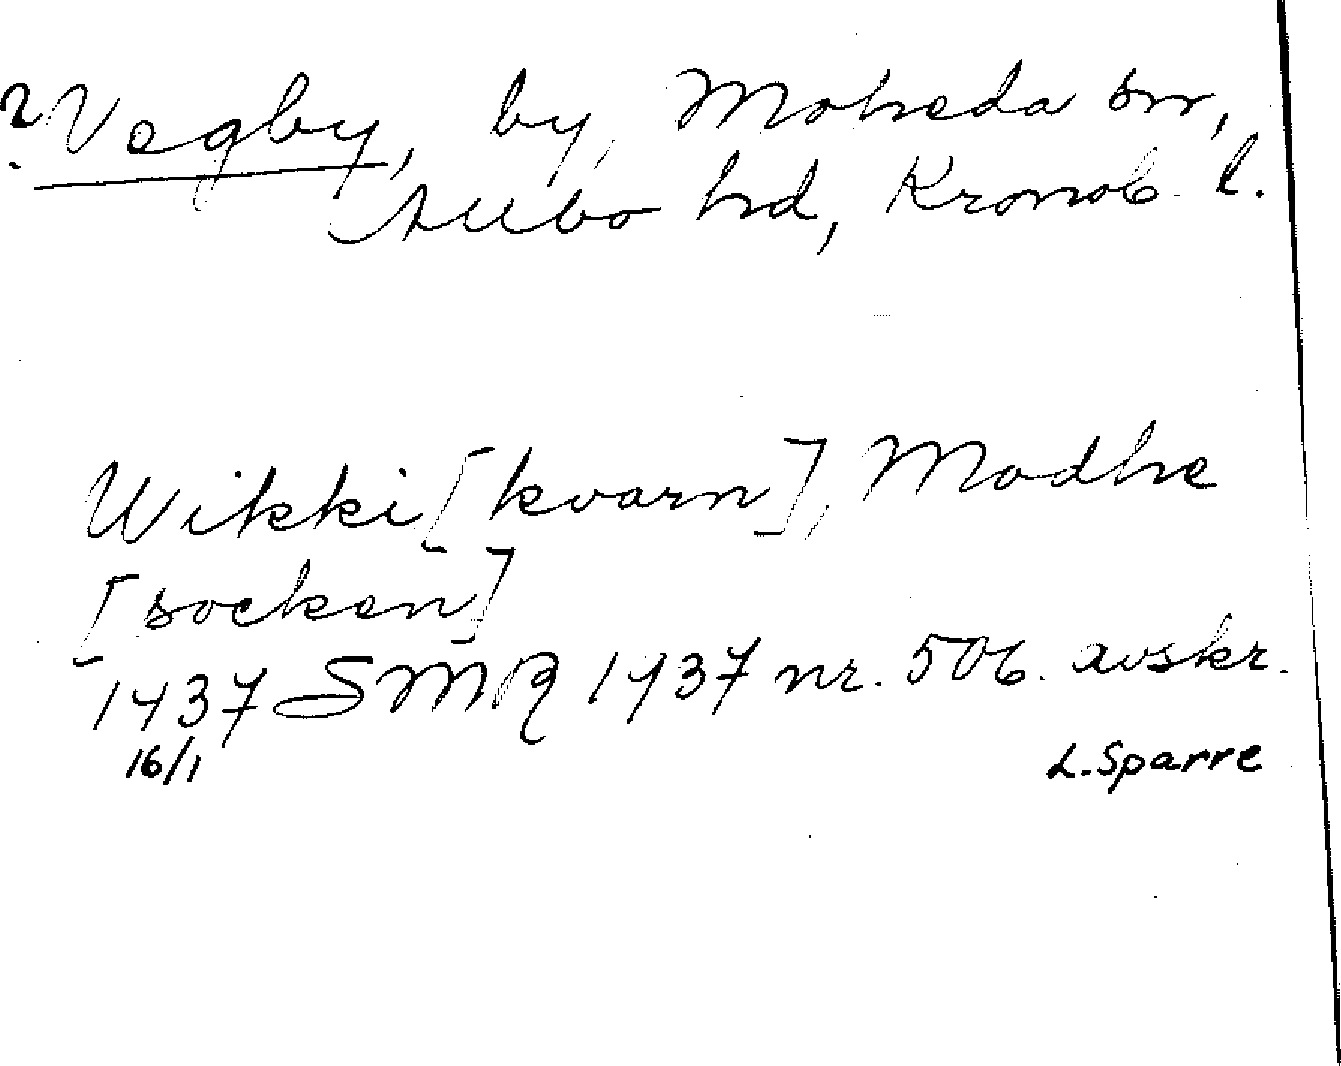 ? Vegby, by, Moheda sn,
Allbo hd, Kronob. l.
Wikki [kvarn], Modhe
[socken]
1437 SMR 1437 nr. 506. avskr.
16/1 L. Sparre